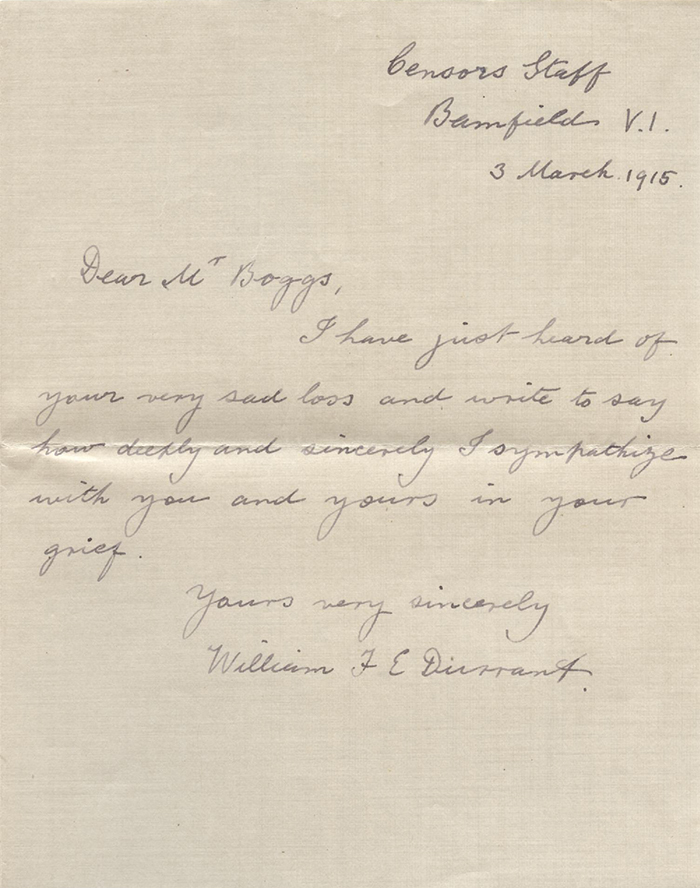 Censors Staff
Bamfield V.I.
3 March. 1915.
Dear Mr Boggs,
I have just heard of
your very sad loss and write to say
how deeply and sincerely I sympathize
with you and yours in your
grief.
Yours very sincerely
William F E Durrant.